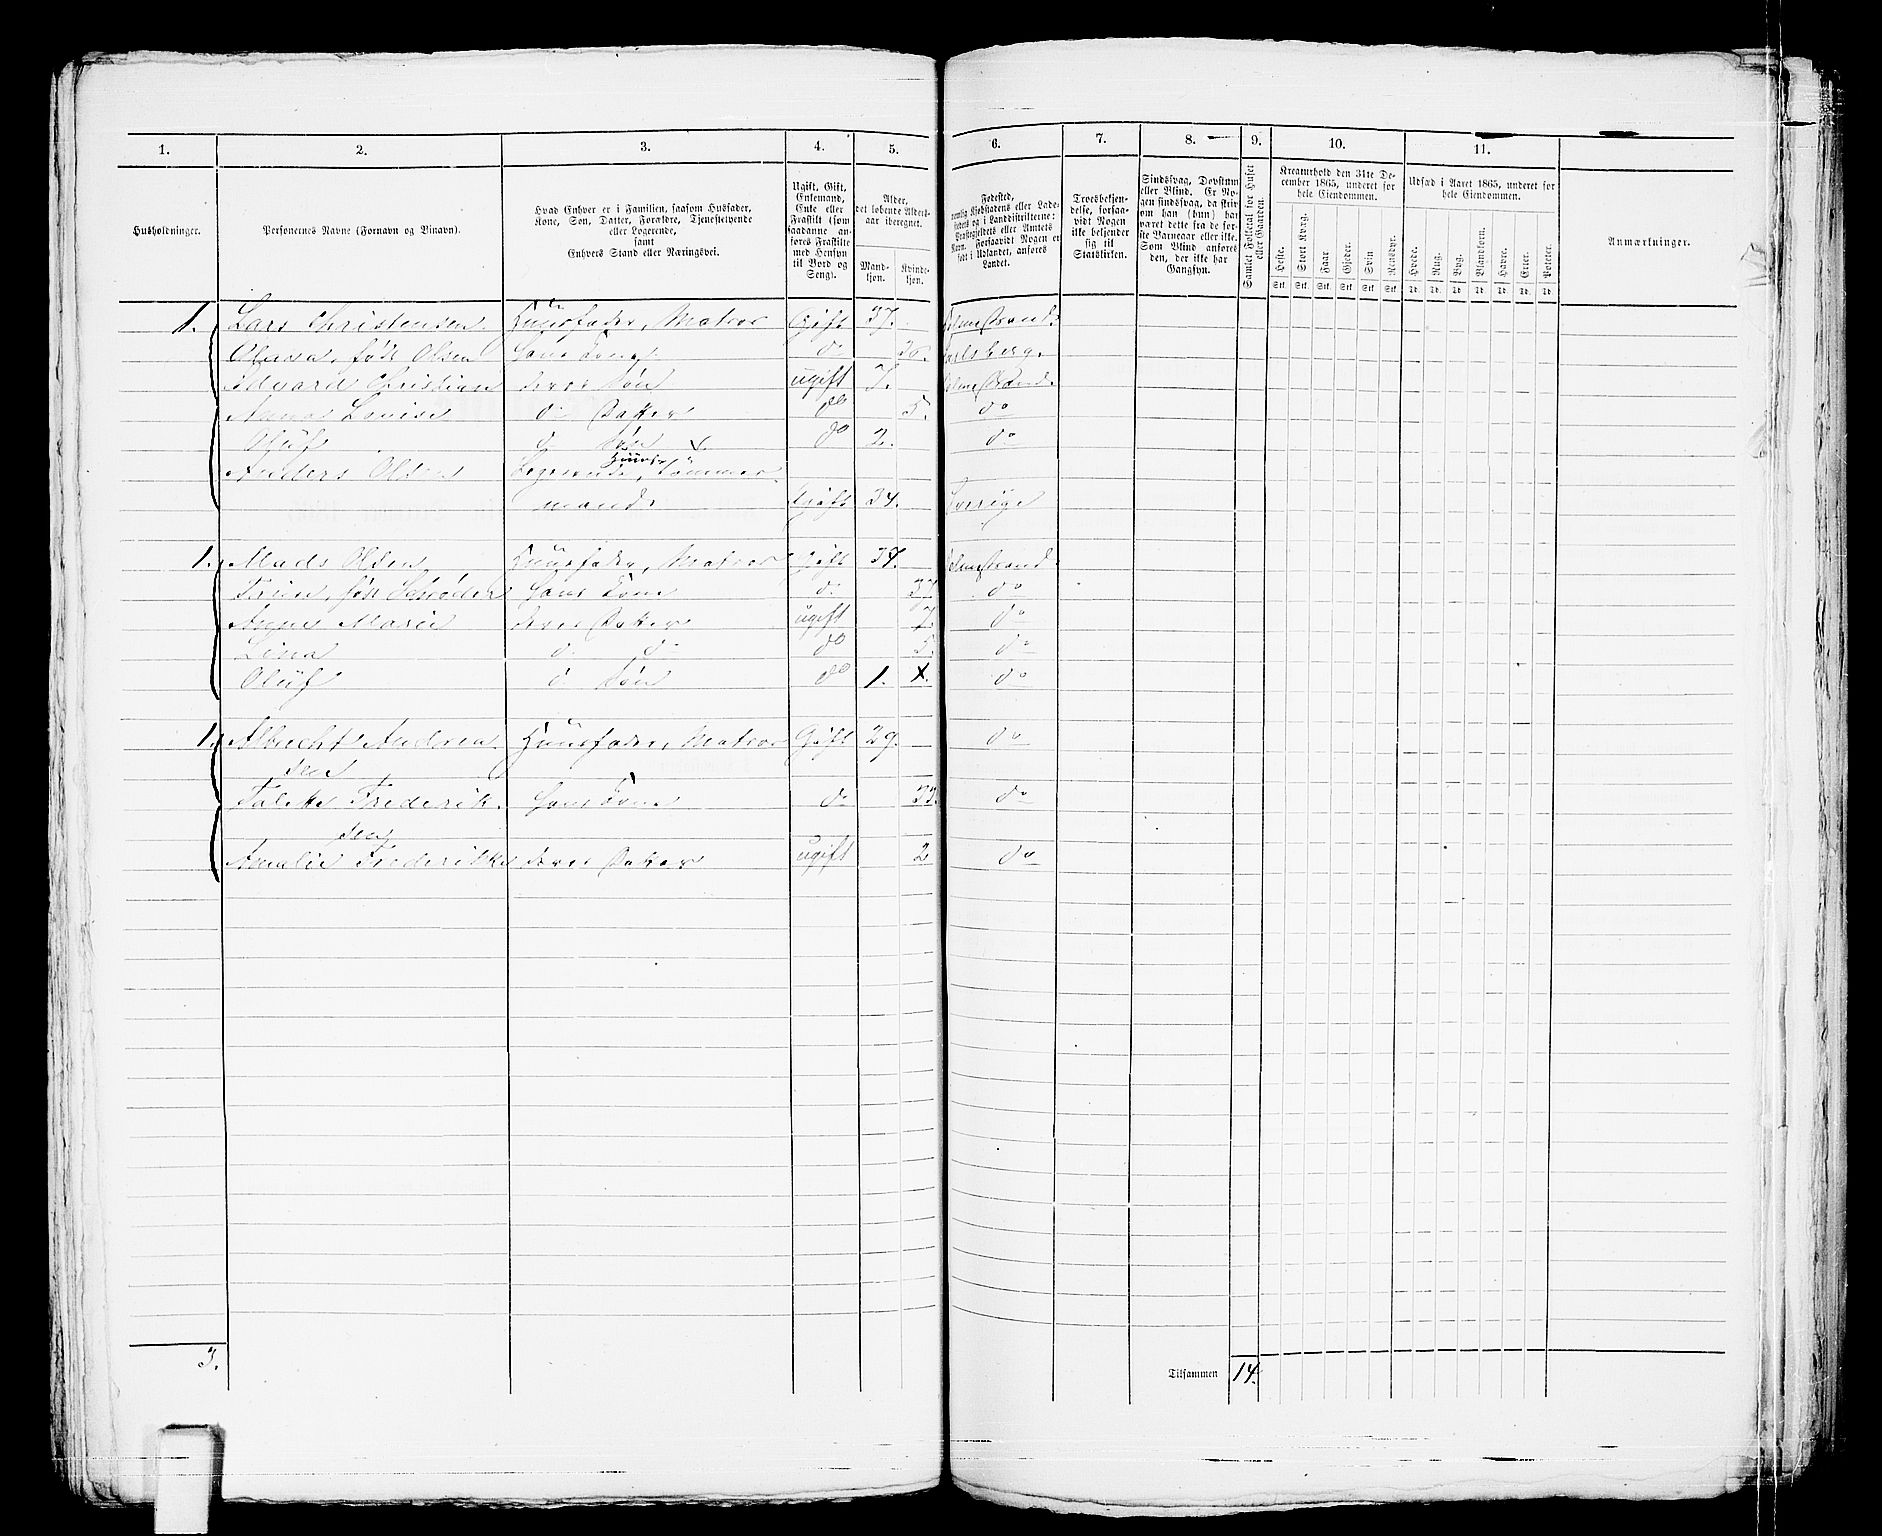 1. 2. 3. 4. 5. 6. 7. 8. 9. 10. 11.
Husholdninger.
Personernes Navne (Fornavn og Binavn).
Hvad Enhver er i Familien, saasom Husfader,
Kone, Søn, Datter, Forældre, Tjenestetyende
eller Logerende,
samt
Enhvers Stand eller Næringsvei.
Ugift, Gift,
Enkemand,
Enke eller
Fraskilt (som
saadanne an-
føres Fraskilte
med Hensyn
til Bord og
Seng).
Alder,
det løbende Alders-
aar iberegnet.
Mand-
kjøn.
Kvinde-
kjøn.
Fødested,
nemlig Kjøbstadens eller Lade-
stedets og i Landdistrikterne:
Præstegjeldets eller Amtets
Navn. Forsaavidt Nogen er
født i Udlandet, anføres
Landet.
Troesbekjen-
delse, forsaa-
vidt Nogen
ikke bekjender
sig til
Statskirken.
Sindssvag, Døvstum
eller Blind. Er No-
gen sindssvag, da skriv
om han (hun) har
været dette fra de før-
ste Barneaar eller ikke.
Som Blind anføres
den, der ikke har
Gangsyn.
Samlet Folketal for Huset
eller Gaarden.
Kreaturhold den 31te De-
cember 1865, underet for
hele Eiendommen.
Heste. Stort Kvæg. Faar. Gjeder. Svin. Rensdyr.
Stk. Stk. Stk. Stk. Stk. Stk.
Udsæd i Aaret 1865, underet for
hele Eiendommen.
Hvede. Rug. Byg. Blandkorn. Havre. Erter. Poteter.
Td. Td. Td. Td. Td. Td. Td.
Anmærkninger.
1. Lars Christensen Huusfader, Matros Gift 37. Holmestrand.
født Olsen Hans Kone do Carlsberg.
Edvard Christian deres Søn ugift 7. Holmestrand
Anna Louise do Datter do 5. do
Oluf do Søn do 2. do
Anders Olsen Logerende, Tømmer
mand Gift 34. Sverige
1. Mads Olsen Huusfader, Matros Gift 37. Holmestrand.
født Schrøder Hans Kone do 37 do
Marie deres Datter ugift 7. do
Lina do do do 5. do
Oluf do Søn do 1. do
1. Albrecht Andrea Huusfader, Matros Gift 29. do
sen
Frederik Hans Kone do 33. do
sen
Amalie Frederikke deres Datter ugift 2 do
3. Tilsammen 14.